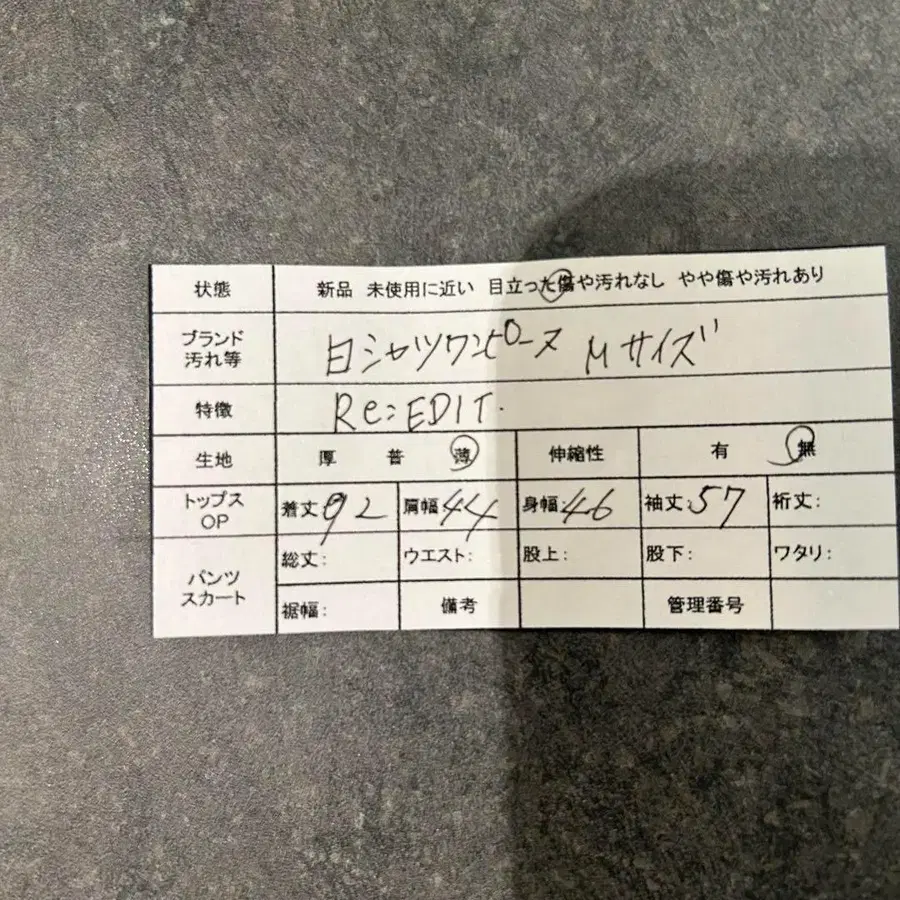 状態 新品 未使用に近い 目立った傷や汚れなし やや傷や汚れあり
ブランド
汚れ等
白シャツワンピース Mサイズ
特徴 Re:EDIT.
生地 厚 普 薄 伸縮性 有 無
トップス
OP
着丈:92 肩幅:44 身幅:46 袖丈:57 裄丈:
パンツ
スカート
総丈: ウエスト: 股上: 股下: ワタリ:
裾幅: 備考 管理番号